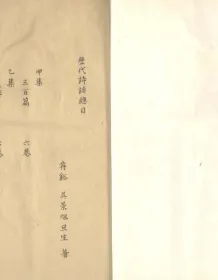 歷代詩話總目
吳景旭旦生 著
甲集
三百篇 六卷
乙集